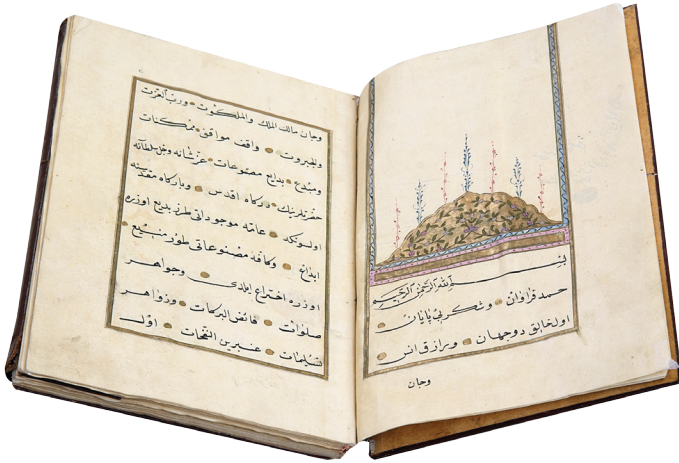 بسم الله الرحمن الرحيم
حمد فراوان وشكر بى پايان
اول خالق دوجهان ورازق انس
وجان
وجان مالك الملك والملكوت ورب العزت
والجبروت واقف مواقف ممكنات
ومبدع بدايع مصنوعات عزشانه وجل سلطانه
حضرتلرينك درگاه اقدس وبارگاه
اولسونكه عامه موجوداتى طرز بديع اوزره
ابداع وكافه مصنوعاتى طور منيع
اوزره اختراع ايلدى وجواهر
صلوات فائض البركات وزواهر
تسليمات عنبرين النفحات اول